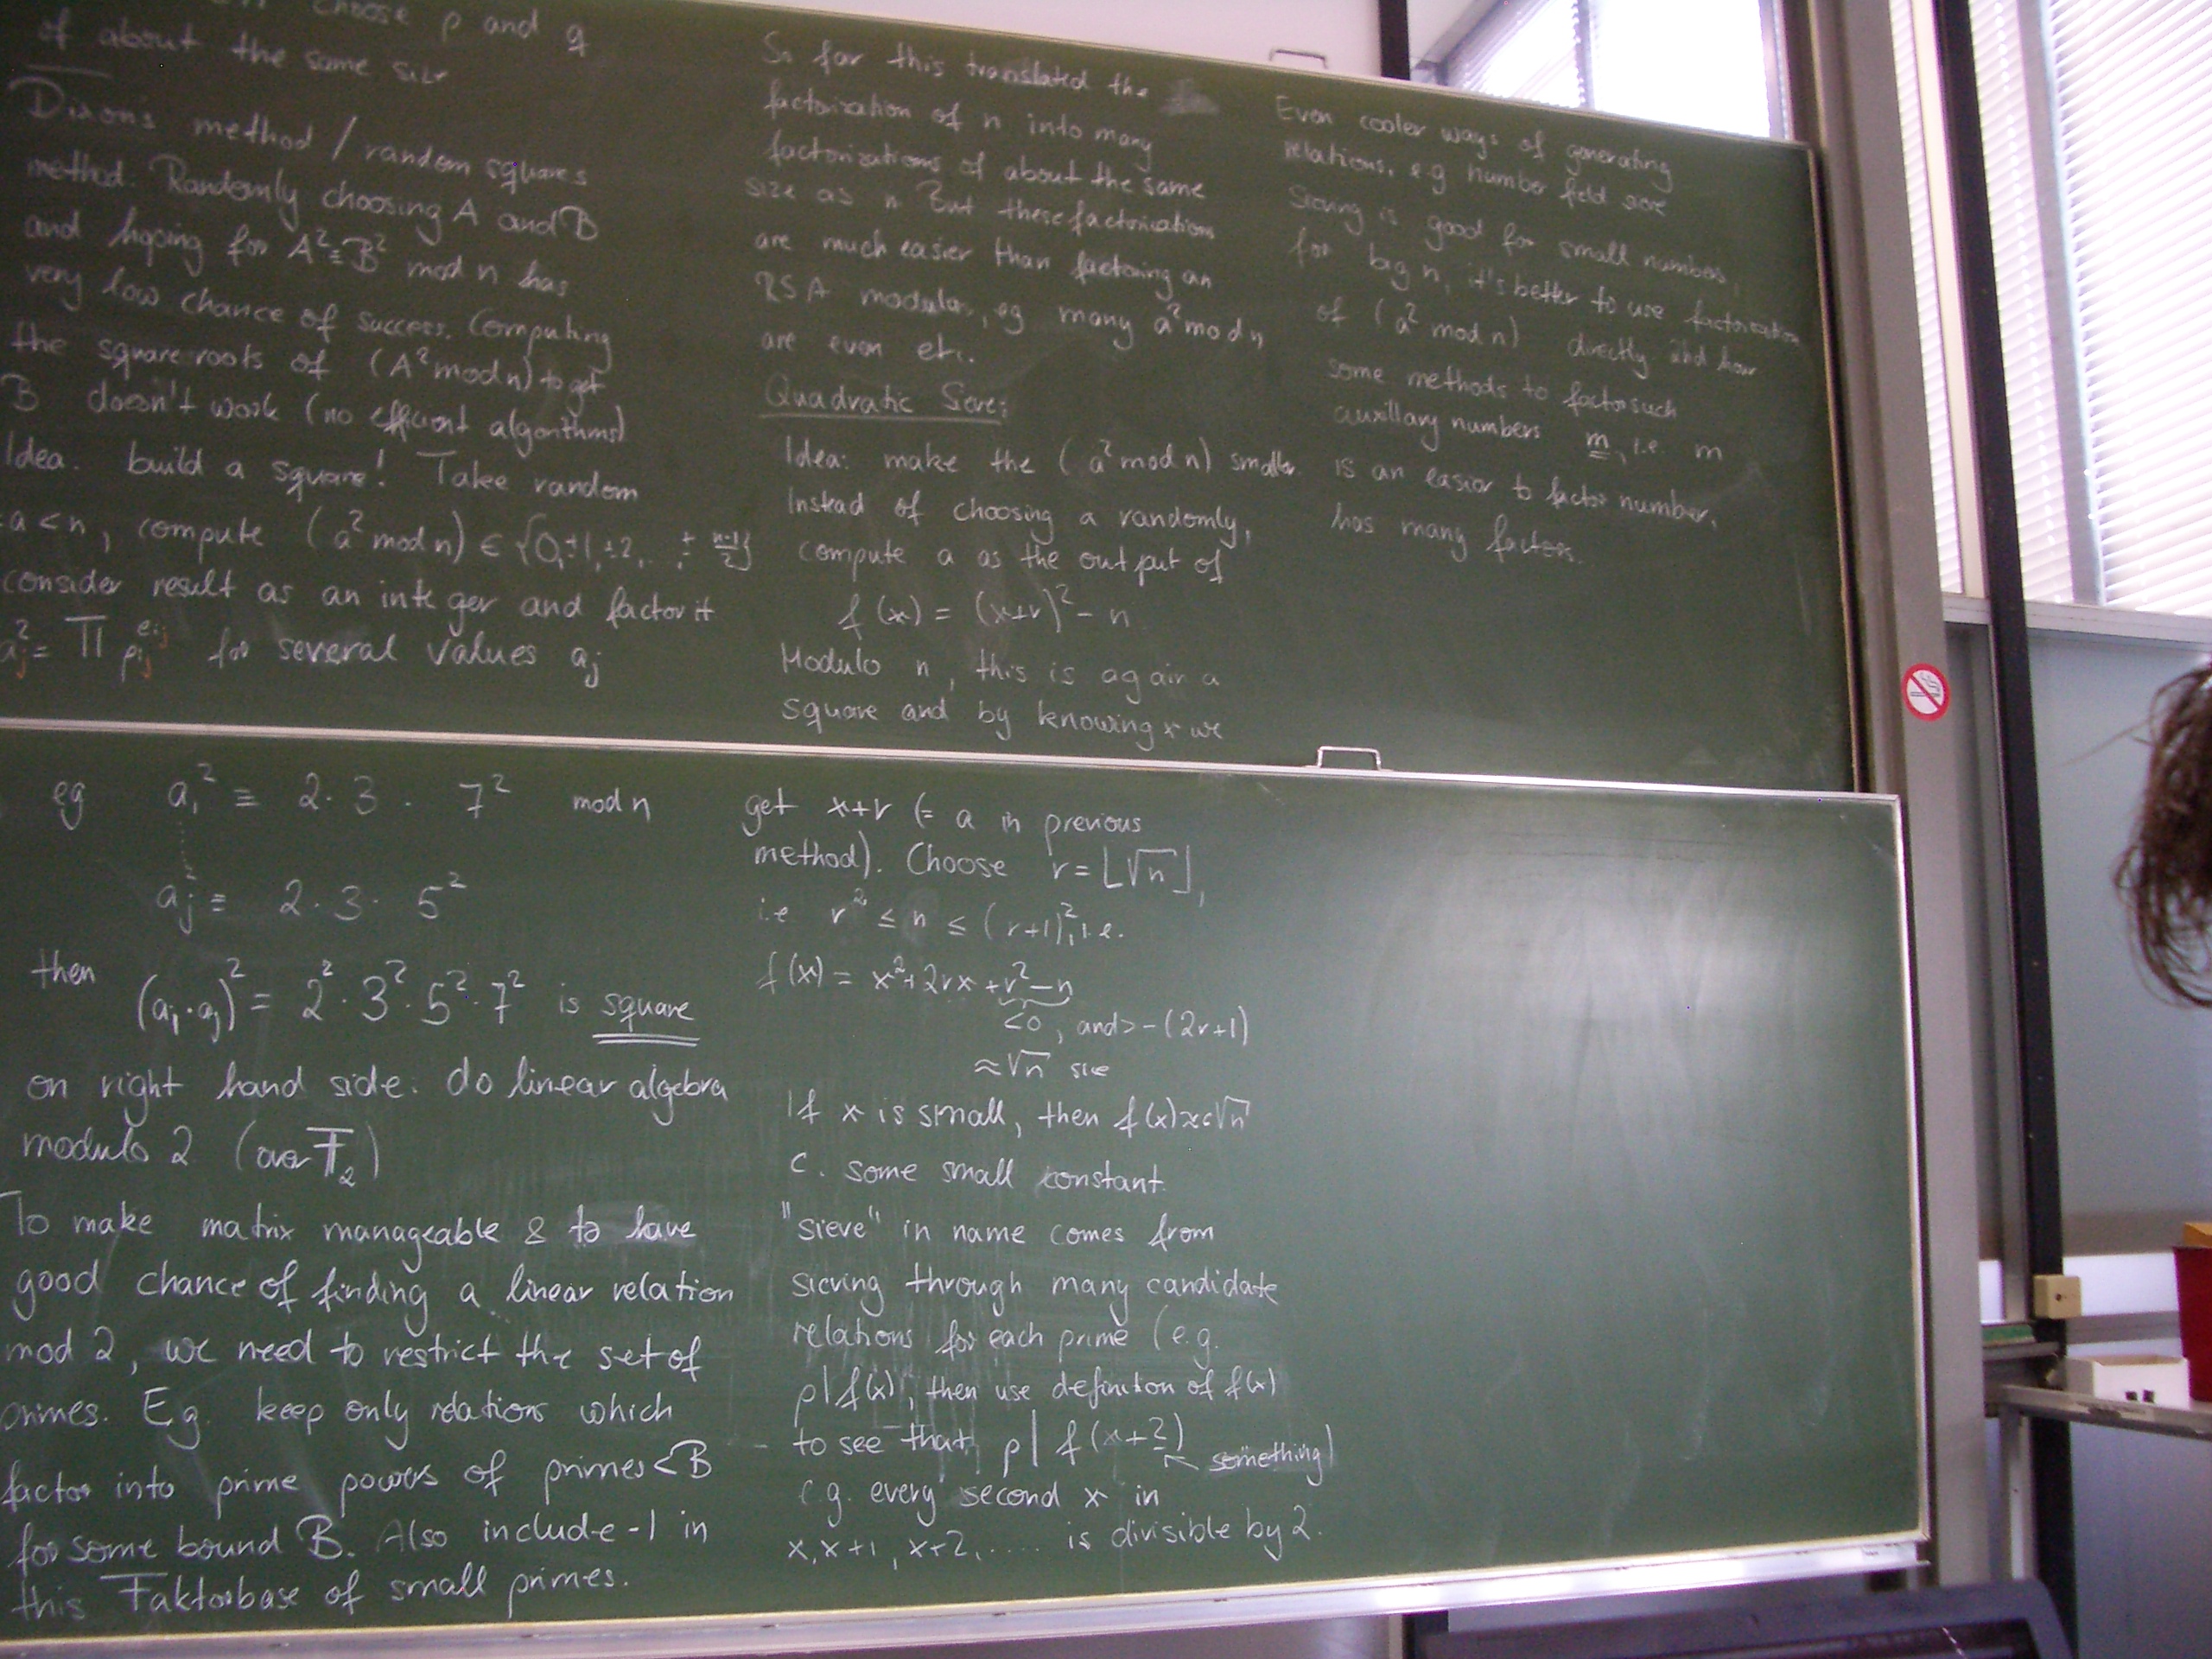 choose p and q
of about the same size
Dixon's method / random squares
method. Randomly choosing A and B
and hoping for A² ≡ B² mod n has
very low chance of success. Computing
the square roots of (A² mod n) to get
B doesn't work (no efficient algorithms)
Idea. build a square! Take random
a < n, compute (a² mod n) ∈ {0, ±1, ±2, ..., ± (n-1)/2}
consider result as an integer and factor it
a_j² = Π p_ij^e_ij for several values a_j
eg a₁² ≡ 2·3· 7² mod n
a_j² ≡ 2·3· 5²
then (a₁·a_j)² = 2²·3²·5²·7² is square
on right hand side. do linear algebra
modulo 2 (over F₂)
To make matrix manageable & to have
good chance of finding a linear relation
mod 2, we need to restrict the set of
primes. E.g. keep only relations which
factor into prime powers of primes < B
for some bound B. Also include -1 in
this Faktorbase of small primes.
So far this translated the
factorization of n into many
factorizations of about the same
size as n. But these factorizations
are much easier than factoring an
RSA modulus, eg many a² mod n
are even etc.
Quadratic Sieve:
Idea: make the (a² mod n) smaller.
Instead of choosing a randomly,
compute a as the output of
f(x) = (x+r)² - n
Modulo n, this is again a
square and by knowing x we
get x+r (= a in previous
method). Choose r = ⌊√n⌋,
i.e r² ≤ n ≤ (r+1)², i.e.
f(x) = x² + 2rx + r² - n
<0, and > -(2r+1)
≈ √n size
If x is small, then f(x) ≈ c√n
c. some small constant.
"sieve" in name comes from
sieving through many candidate
relations for each prime (e.g.
p | f(x), then use definition of f(x)
to see that p | f(x+?)
something)
e.g. every second x in
x, x+1, x+2, .... is divisible by 2.
Even cooler ways of generating
relations, e.g number field sieve
Sieving is good for small numbers,
for big n, it's better to use factorization
of (a² mod n) directly and have
some methods to factor such
auxillary numbers m, i.e. m
is an easier to factor number,
has many factors.